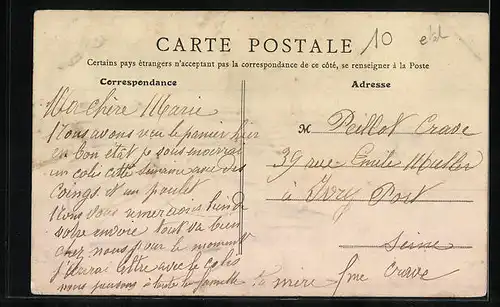 10
CARTE POSTALE
Certains pays étrangers n'acceptant pas la correspondance de ce côté, se renseigner à la Poste
Correspondance
Ma chère Marie
Nous avons reçu le panier hier
en bon état je vous enverrai
un colis cette semaine avec des
coings et un poulet
Nous vous remercions bien de
votre encore tout va bien
chez nous pour le moment
lettre avec le colis
nous à toute la famille ta mère fme Crave
Adresse
M Peillot Crave
39 rue Emile Muller
à Ivry Port
Seine